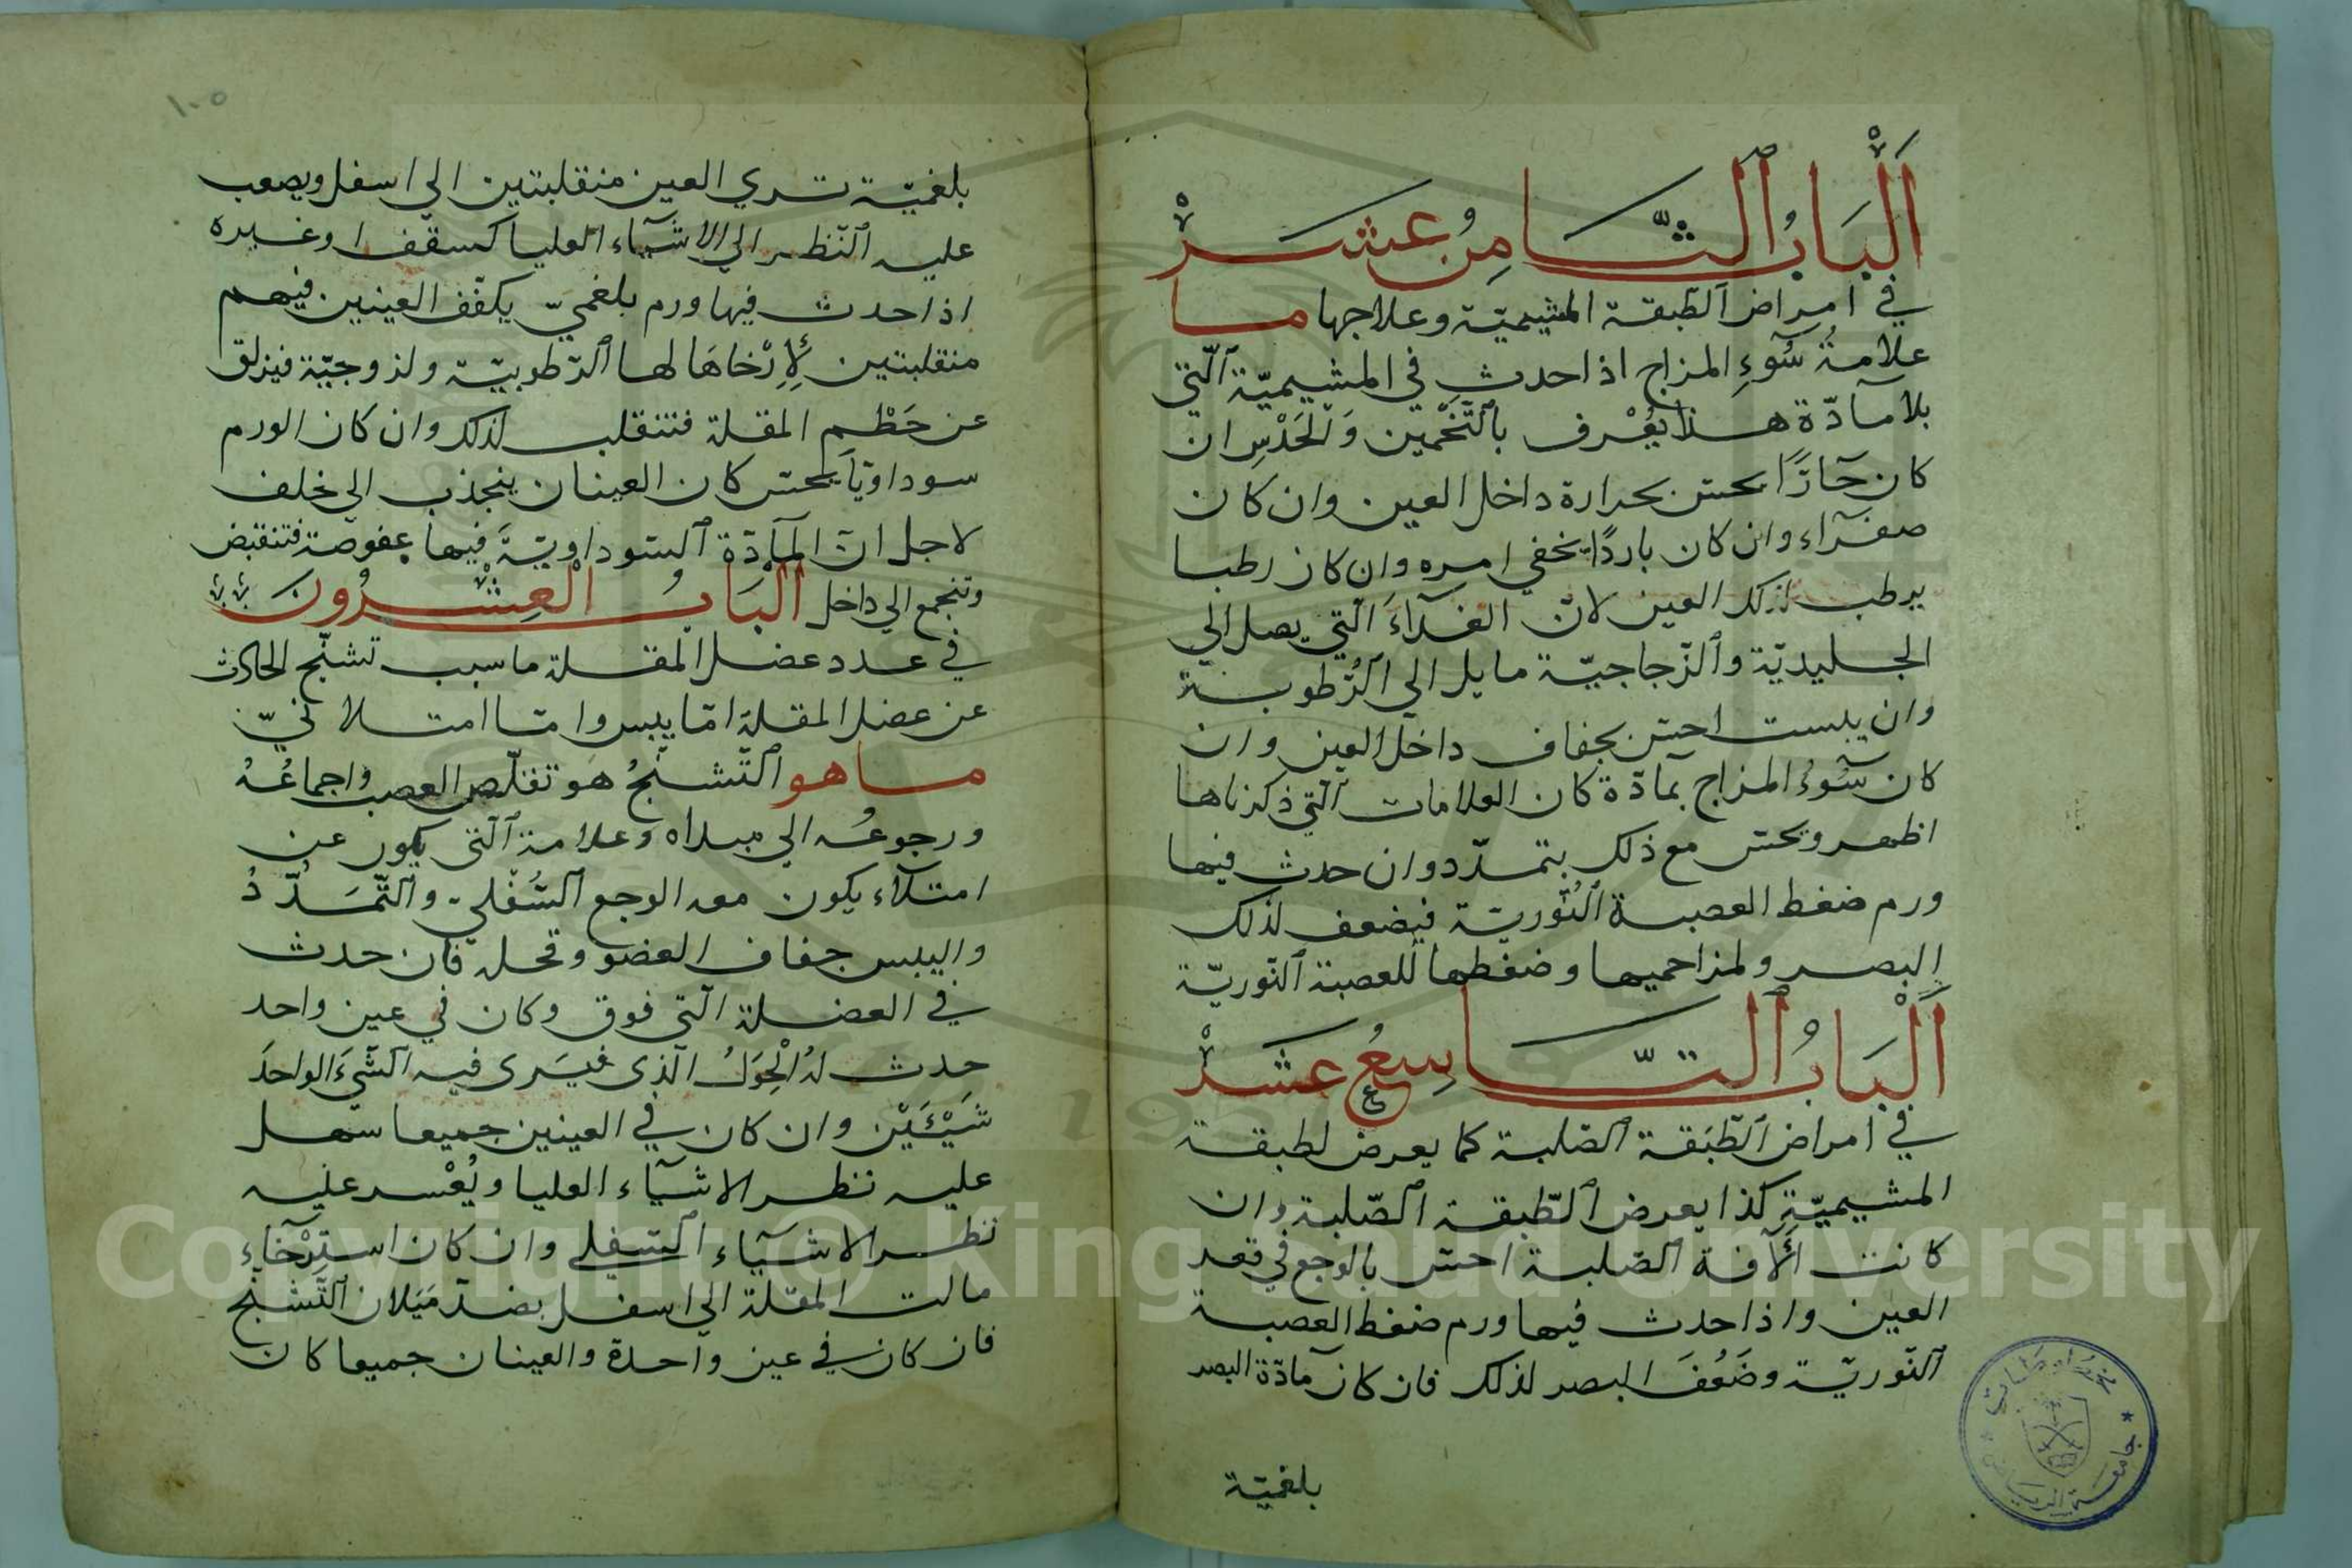 اَلْبَابُ ٱلثَّامِنُ عَشَرْ
في امراض ٱلطّبقة المشيميّة وعلاجها ما
علامةُ سُوءِ المزاج اذا حدث في المشيميّة ٱلّتي
بلا مآدّة هذا يُعْرف بٱلتَّخْمين وَالحَدْسِ ان
كان حَآرًّا يحسّ بحرارة داخل العين وان كان
صفرآء وان كان باردًا يخفي امره وان كان رطبا
يرطب لذلك العين لانّ الغدآءَ الّتي يصل الي
الجليديّة وٱلزّجاجيّة مايل الي ٱلرُّطوبة
وان يبست احسّ بجفاف داخل العين وان
كان سُوءُ المزاج بمآدّة كان العلامات الّتي ذكرناها
اظهر ويحسّ مع ذلك بتمدّد وان حدث فيها
ورم ضغط العصبة ٱلنُّوريّة فيضعف لذلك
البصر ولمزاحميها وضغطها للعصبة ٱلنّوريّة
اَلْبَابُ ٱلتَّاسِعُ عَشَرْ
في امراض ٱلطّبَقة ٱلصّلبة كما يعرض لطبقة
المشيميّةِ كذا يعرض ٱلطّبقة ٱلصّلبة وان
كانت الْآفة ٱلصّلبة احسّ بالوجع في قعر
العين واذا حدث فيها ورم ضغط العصبة
ٱلنّوريّة وضَعُفَ البصر لذلك فان كان مآدّة البصر
بلغميّة
١٠٥
بلغميّة تري العين منقلبتين الي اسفل ويصعب
عليه ٱلنّظر الي الاشيآء العليا كسقف ا وغيره
اذا حدث فيها ورم بلغميّ يكفّف العينين فيهم
منقلبتين لِاِرْخاهَا لها ٱلرّطوبيّة ولزوجيّة فيزلق
عن حَطْم المقلة فتنقلب لذلك وان كان الورم
سوداويّاً يحسّ كان العينان ينجذب الي خلف
لاجل انّ المآدّة ٱلسّوداويّةَ فيها عفوصة فتنقبض
وتنجمع الي داخل اَلْبَابُ الْعِشْرُونَ
في عدد عضل المقلة ما سبب تشنّج الحادث
عن عضل المقلة امّا يبس وامّا امتلائيّ
ما هو ٱلتّشنّجُ هو تقلّص العصب واجماعُهُ
ورجوعُه الي مبداه وعلامة ٱلّتي يكون عن
امتلآء يكون معه الوجع ٱلسُّفلي وٱلتّمَدُّدُ
واليبس جفاف العضو وقحله فان حدث
في العضلة الّتي فوق وكان في عين واحد
حدث لهُ الْحِوَلُ الّذى فيَرى فيه ٱلشّيءَ الواحدَ
شَيْئَيْن وان كان في العينين جميعا سهل
عليه نظر الاشيآء العليا ويُعْسر عليه
نظر الاشيآء ٱلسّفلي وان كان استِرْخآء
مالت المقلة الي اسفل بضدّ مَيَلان ٱلتّشنّج
فان كان في عين واحدة والعينان جميعا كان
Copyright © King Saud University
1957